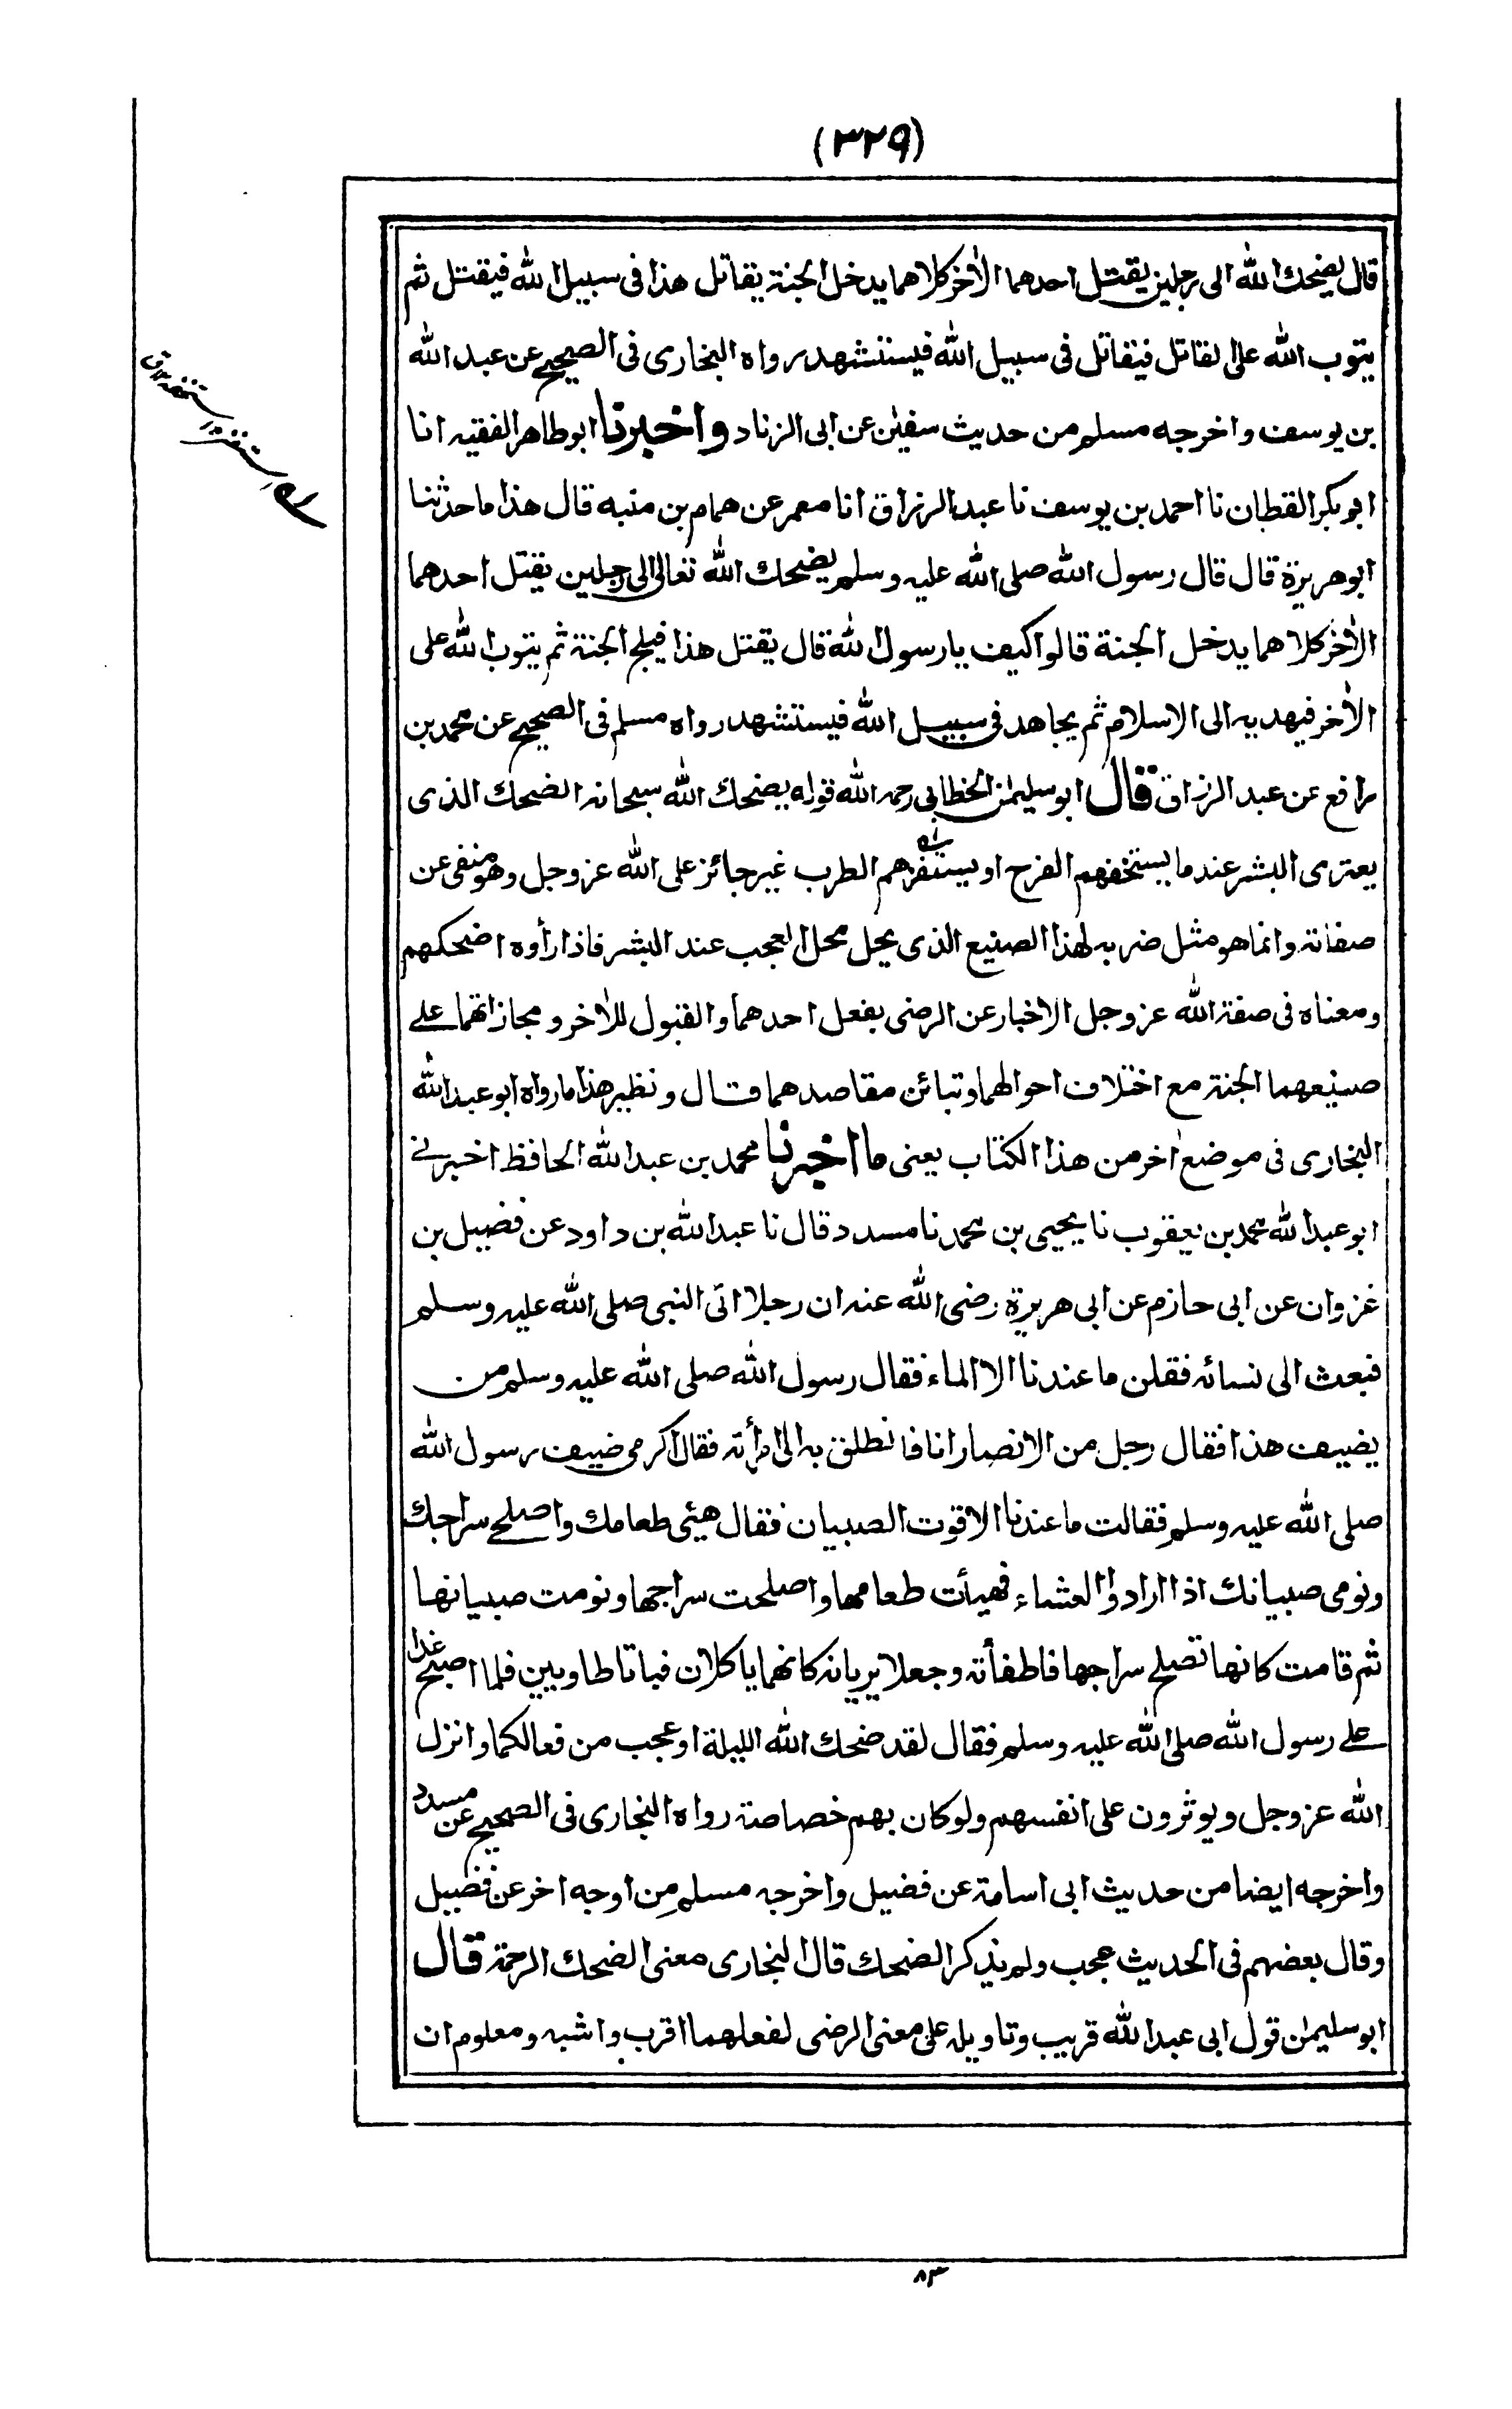 (٣٢٩)
قال يضحك الله الى رجلين يقتل احدهما الاخر كلاهما يدخل الجنة يقاتل هذا فى سبيل الله فيقتل ثم
يتوب الله على القاتل فيقاتل فى سبيل الله فيستشهد رواه البخارى فى الصحيح عن عبد الله
بن يوسف واخرجه مسلم من حديث سفين عن ابى الزناد واخبرنا ابو طاهر الفقيه انا
ابو بكر القطان نا احمد بن يوسف نا عبد الرزاق انا معمر عن همام بن منبه قال هذا ما حدثنا
ابو هريرة قال قال رسول الله صلى الله عليه وسلم يضحك الله تعالى الى رجلين يقتل احدهما
الاخر كلاهما يدخل الجنة قالوا كيف يا رسول الله قال يقتل هذا فيلج الجنة ثم يتوب الله على
الاخر فيهديه الى الاسلام ثم يجاهد فى سبيل الله فيستشهد رواه مسلم فى الصحيح عن محمد بن
رافع عن عبد الرزاق قال ابو سليمن الخطابى رحمه الله قوله يضحك الله سبحانه الضحك الذى
يعترى البشر عندما يستخفهم الفرح او يستفزهم الطرب غير جائز على الله عز وجل وهو منفى عن
صفاته وانما هو مثل ضربه لهذا الصنيع الذى يحل محل العجب عند البشر فاذا رأوه اضحكهم
ومعناه فى صفة الله عز وجل الاخبار عن الرضى بفعل احدهما والقبول للاخر ومجازاتهما على
صنيعهما الجنة مع اختلاف احوالهما وتبائن مقاصدهما قال ونظير هذا ما رواه ابو عبد الله
البخارى فى موضع اخر من هذا الكتاب يعنى ما اخبرنا محمد بن عبد الله الحافظ اخبرنى
ابو عبد الله محمد بن يعقوب نا يحيى بن محمد نا مسدد قال نا عبد الله بن داود عن فضيل بن
غزوان عن ابى حازم عن ابى هريرة رضى الله عنه ان رجلا اتى النبى صلى الله عليه وسلم
فبعث الى نسائه فقلن ما عندنا الا الماء فقال رسول الله صلى الله عليه وسلم من
يضيف هذا فقال رجل من الانصار انا فانطلق به الى امرأته فقال اكرمى ضيف رسول الله
صلى الله عليه وسلم فقالت ما عندنا الا قوت الصبيان فقال هيئى طعامك واصلحى سراجك
ونومى صبيانك اذا ارادوا العشاء فهيأت طعامها واصلحت سراجها ونومت صبيانها
ثم قامت كانها تصلح سراجها فاطفأته وجعلا يريانه كانهما ياكلان فباتا طاويين فلما اصبح غدا
على رسول الله صلى الله عليه وسلم فقال لقد ضحك الله الليلة او عجب من فعالكما وانزل
الله عز وجل ويوثرون على انفسهم ولو كان بهم خصاصة رواه البخارى فى الصحيح عن مسدد
واخرجه ايضا من حديث ابى اسامة عن فضيل واخرجه مسلم من اوجه اخر عن فضيل
وقال بعضهم فى الحديث عجب ولم يذكر الضحك قال البخارى معنى الضحك الرحمة قال
ابو سليمن قول ابى عبد الله قريب وتاويله على معنى الرضى لفعلهما اقرب واشبه ومعلوم ان
٨٣